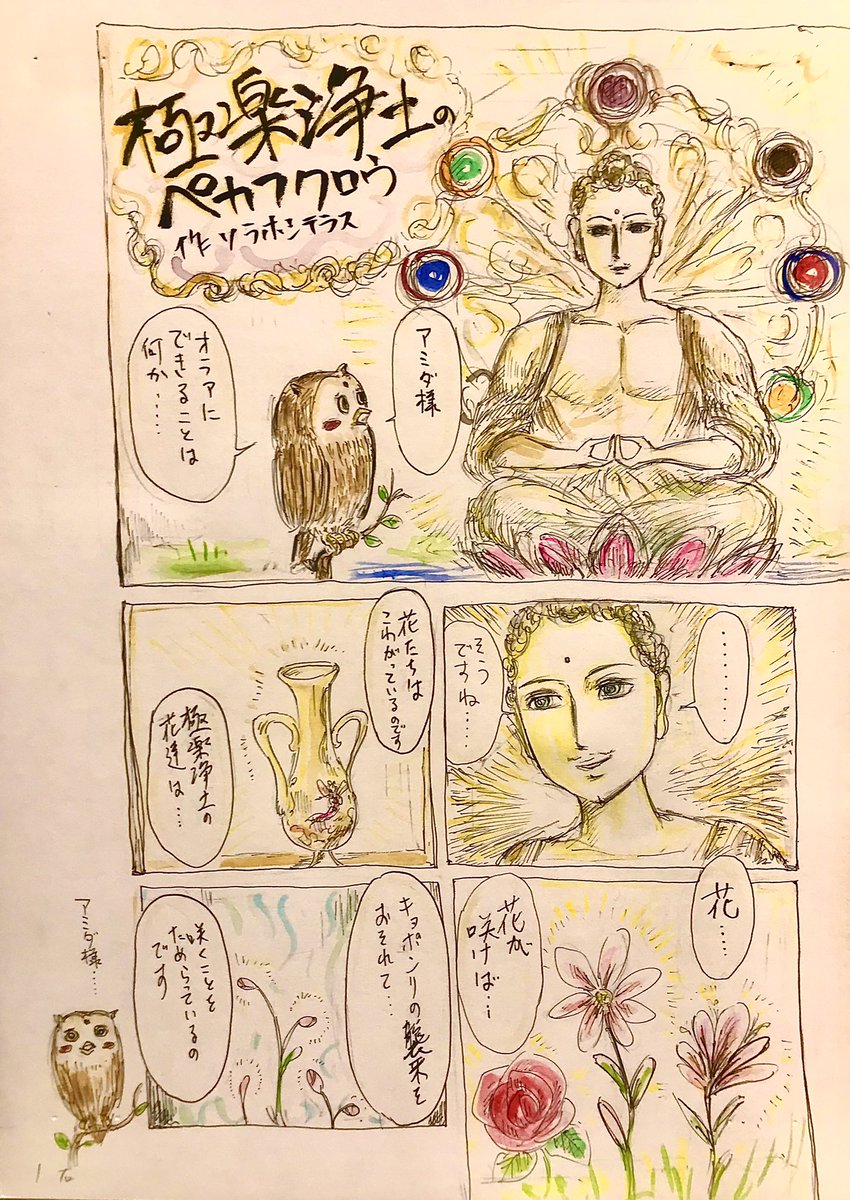 極楽浄土の
ペカフクロウ
作 ソラホシテラス
アミダ様
オラアに
できることは
何か……
………
そう
ですね……
花たちは
こわがっているのです
極楽浄土の
花達は…
花……
花が
咲けば…
キョポンリの襲来を
おそれて…
咲くことを
ためらっているの
です
アミダ様……
1